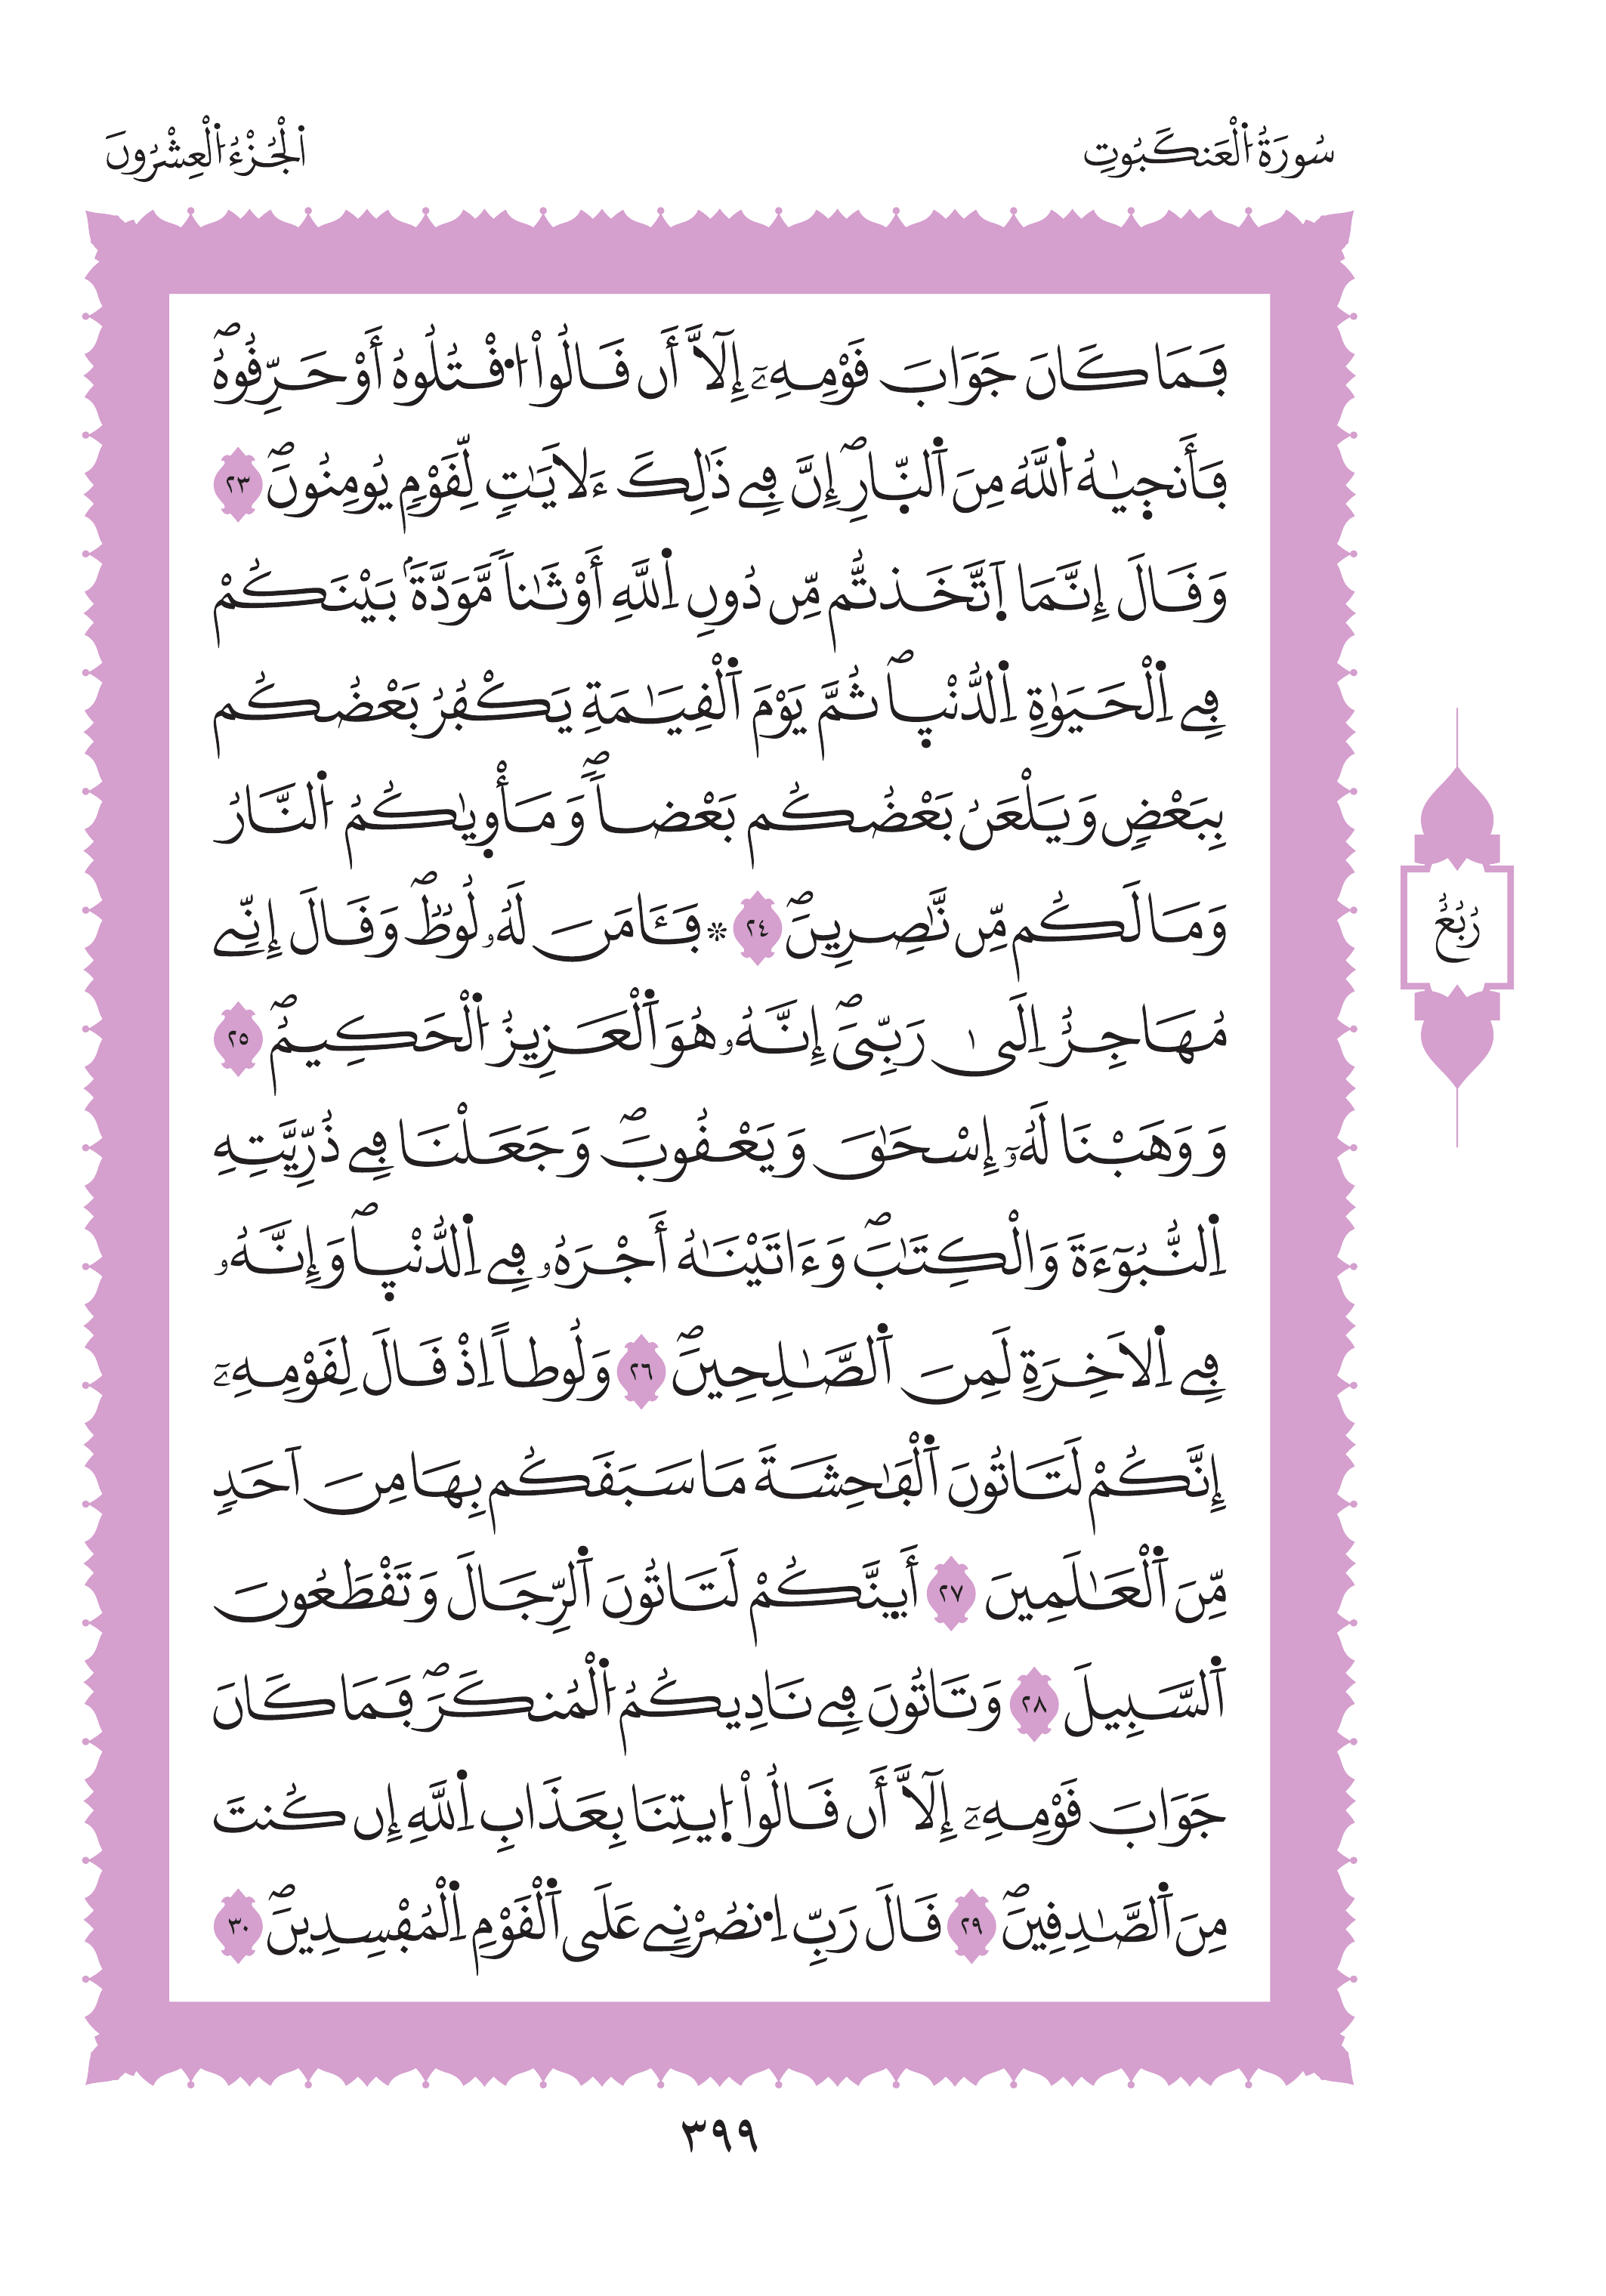 سُورَةُ اُ۬لْعَنكَبُوتِ
اَ۬لْجُزْءُ اُ۬لْعِشْرُونَ
ڢَمَا كَانَ جَوَابَ فَوْمِهِۦٓ إِلَّآ أَن فَالُواْ اُ۟فْتُلُوهُ أَوْ حَرِّفُوهُۖ
ڢَأَنج۪يٰهُ اُ۬للَّهُ مِنَ اَ۬لنّ۪ارِۖ إِنَّ ڢِے ذَٰلِكَ ءَلَايَٰتٖ لِّفَوْمٖ يُومِنُونَۖ ٢٣
وَفَالَ إِنَّمَا اَ۪تَّخَذتُّم مِّن دُونِ اِ۬للَّهِ أَوْثَٰناٗ مَّوَدَّةَۢ بَيْنَكُمْ
ڢِے اِ۬لْحَيَوٰةِ اِ۬لدُّنْي۪اۖ ثُمَّ يَوْمَ اَ۬لْفِيَٰمَةِ يَكْفُرُ بَعْضُكُم
بِبَعْضٖ وَيَلْعَنُ بَعْضُكُم بَعْضاٗۖ وَمَأْو۪يٰكُمُ اُ۬لنَّارُ
وَمَا لَكُم مِّن نَّٰصِرِينَۖ ٢٤ ۞ ڢَـَٔامَنَ لَهُۥ لُوطٞۖ وَفَالَ إِنِّے
مُهَاجِرٌ اِلَىٰ رَبِّيَۖ إِنَّهُۥ هُوَ اَ۬لْعَزِيزُ اُ۬لْحَكِيمُۖ ٢٥
وَوَهَبْنَا لَهُۥٓ إِسْحَٰقَ وَيَعْفُوبَۖ وَجَعَلْنَا ڢِے ذُرِّيَّتِهِ
اِ۬لنُّبُوٓءَةَ وَالْكِتَٰبَۖ وَءَاتَيْنَٰهُ أَجْرَهُۥ ڢِے اِ۬لدُّنْي۪اۖ وَإِنَّهُۥ
ڢِے اِ۬لَاخِرَةِ لَمِنَ اَ۬لصَّٰلِحِينَۖ ٢٦ وَلُوطاً اِذْ فَالَ لِفَوْمِهِۦٓ
إِنَّكُمْ لَتَاتُونَ اَ۬لْڢَٰحِشَةَ مَا سَبَفَكُم بِهَا مِنَ اَحَدٖ
مِّنَ اَ۬لْعَٰلَمِينَ ٢٧ أَىِٕنَّكُمْ لَتَاتُونَ اَ۬لرِّجَالَ وَتَفْطَعُونَ
اَ۬لسَّبِيلَ ٢٨ وَتَاتُونَ ڢِے نَادِيكُمُ اُ۬لْمُنكَرَۖ ڢَمَا كَانَ
جَوَابَ فَوْمِهِۦٓ إِلَّآ أَن فَالُواْ اُ۪يتِنَا بِعَذَابِ اِ۬للَّهِ إِن كُنتَ
مِنَ اَ۬لصَّٰدِفِينَۖ ٢٩ فَالَ رَبِّ اِ۟نصُرْنِے عَلَى اَ۬لْفَوْمِ اِ۬لْمُڢْسِدِينَۖ ٣٠
رُبُعُ
٣٩٩